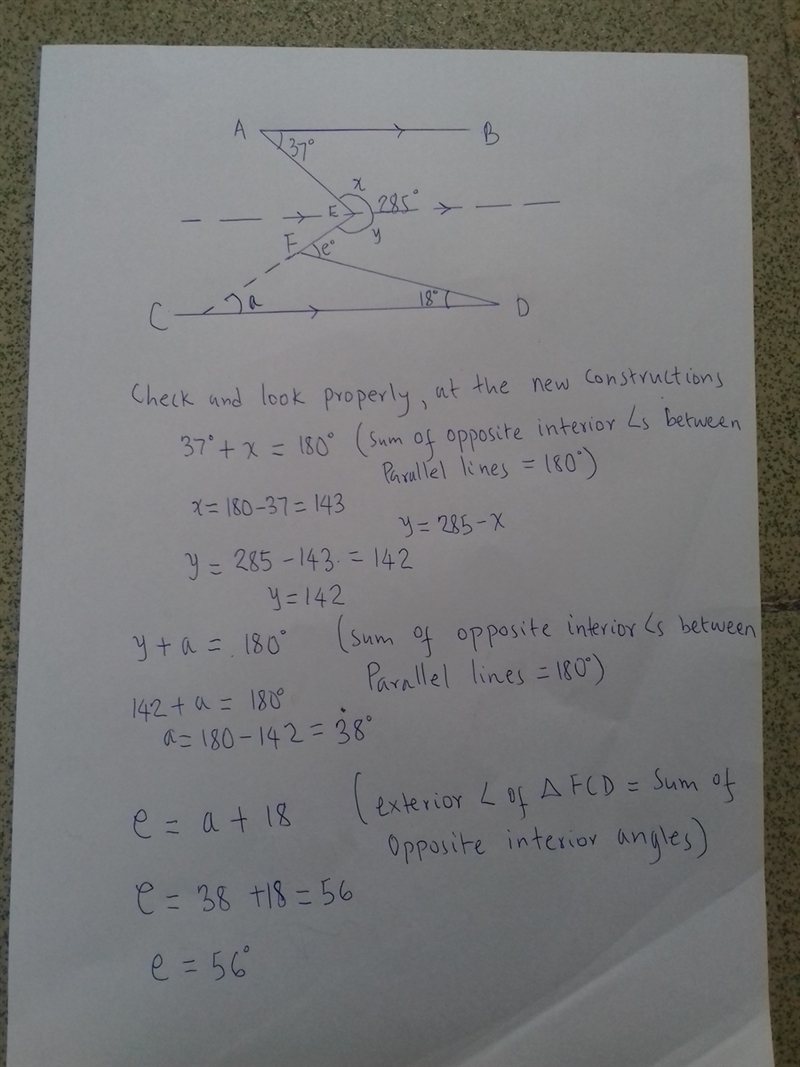 A B
37°
x
E 285°
y
F e°
a 18°
C D
Check and look properly, at the new constructions
37° + x = 180° (Sum of opposite interior ∠s between
Parallel lines = 180°)
x = 180 - 37 = 143
y = 285 - x
y = 285 - 143 = 142
y = 142
y + a = 180° (Sum of opposite interior ∠s between
Parallel lines = 180°)
142 + a = 180°
a = 180 - 142 = 38°
e = a + 18 (exterior ∠ of △ FCD = Sum of
Opposite interior angles)
e = 38 + 18 = 56
e = 56°